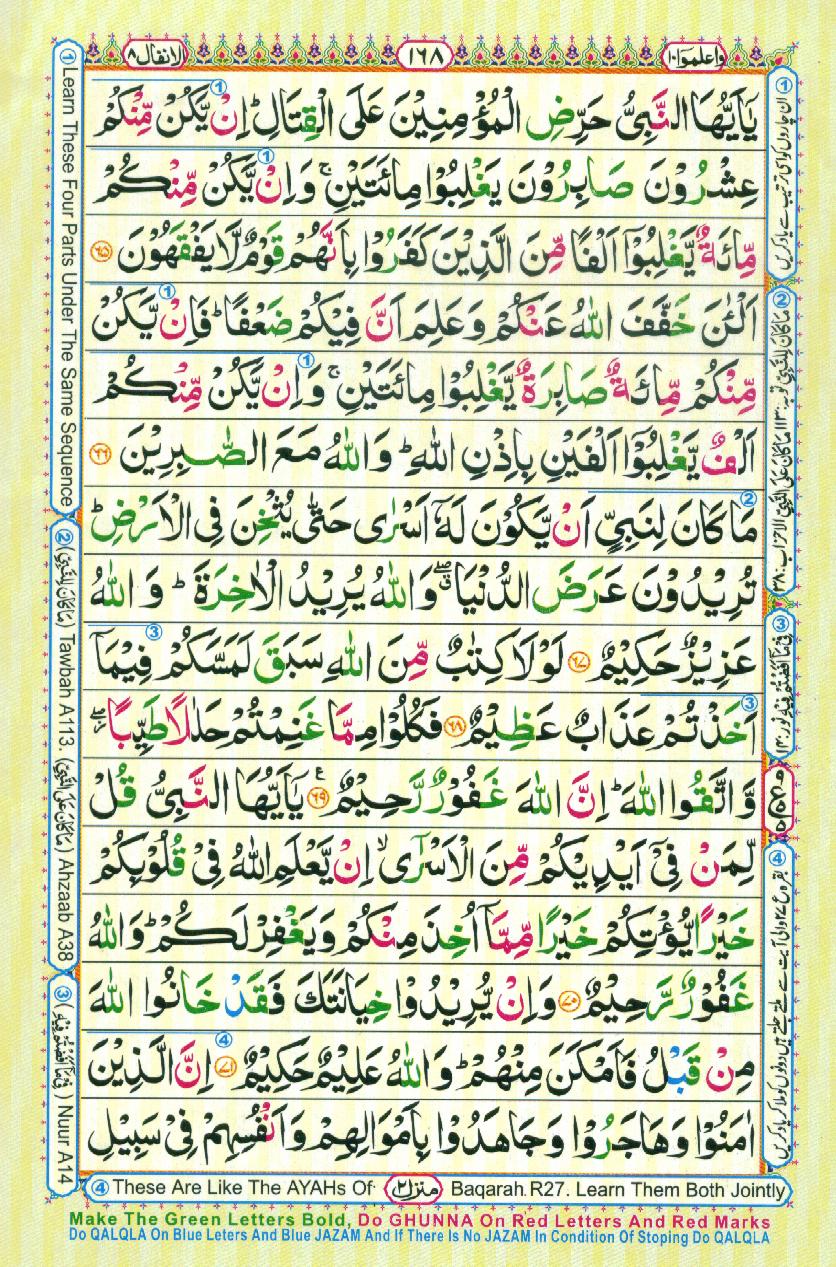 واعلموا ١٠
١٦٨
الانفال ٨
يٰۤاَيُّهَا النَّبِىُّ حَرِّضِ الْمُؤْمِنِيْنَ عَلَى الْقِتَالِ ؕ اِنْ يَّكُنْ مِّنْكُمْ
عِشْرُوْنَ صَابِرُوْنَ يَغْلِبُوْا مِائَتَيْنِ ۚ وَاِنْ يَّكُنْ مِّنْكُمْ
مِّائَةٌ يَّغْلِبُوْۤا اَلْفًا مِّنَ الَّذِيْنَ كَفَرُوْا بِاَنَّهُمْ قَوْمٌ لَّا يَفْقَهُوْنَ ﴿٦٥﴾
اَلْـٰٔنَ خَفَّفَ اللّٰهُ عَنْكُمْ وَعَلِمَ اَنَّ فِيْكُمْ ضَعْفًا ؕ فَاِنْ يَّكُنْ
مِّنْكُمْ مِّائَةٌ صَابِرَةٌ يَّغْلِبُوْا مِائَتَيْنِ ۚ وَاِنْ يَّكُنْ مِّنْكُمْ
اَلْفٌ يَّغْلِبُوْۤا اَلْفَيْنِ بِاِذْنِ اللّٰهِ ؕ وَاللّٰهُ مَعَ الصّٰبِرِيْنَ ﴿٦٦﴾
مَا كَانَ لِنَبِىٍّ اَنْ يَّكُوْنَ لَهٗۤ اَسْرٰى حَتّٰى يُثْخِنَ فِى الْاَرْضِ ؕ
تُرِيْدُوْنَ عَرَضَ الدُّنْيَا ۖۗ وَاللّٰهُ يُرِيْدُ الْاٰخِرَةَ ؕ وَاللّٰهُ
عَزِيْزٌ حَكِيْمٌ ﴿٦٧﴾ لَوْلَا كِتٰبٌ مِّنَ اللّٰهِ سَبَقَ لَمَسَّكُمْ فِيْمَاۤ
اَخَذْتُمْ عَذَابٌ عَظِيْمٌ ﴿٦٨﴾ فَكُلُوْا مِمَّا غَنِمْتُمْ حَلٰلًا طَيِّبًا ۖ
وَّاتَّقُوا اللّٰهَ ؕ اِنَّ اللّٰهَ غَفُوْرٌ رَّحِيْمٌ ﴿٦٩﴾ يٰۤاَيُّهَا النَّبِىُّ قُلْ
لِّمَنْ فِىْۤ اَيْدِيْكُمْ مِّنَ الْاَسْرٰٓى ۙ اِنْ يَّعْلَمِ اللّٰهُ فِىْ قُلُوْبِكُمْ
خَيْرًا يُّؤْتِكُمْ خَيْرًا مِّمَّاۤ اُخِذَ مِنْكُمْ وَيَغْفِرْ لَكُمْ ؕ وَاللّٰهُ
غَفُوْرٌ رَّحِيْمٌ ﴿٧٠﴾ وَاِنْ يُّرِيْدُوْا خِيَانَتَكَ فَقَدْ خَانُوا اللّٰهَ
مِنْ قَبْلُ فَاَمْكَنَ مِنْهُمْ ؕ وَاللّٰهُ عَلِيْمٌ حَكِيْمٌ ﴿٧١﴾ اِنَّ الَّذِيْنَ
اٰمَنُوْا وَهَاجَرُوْا وَجَاهَدُوْا بِاَمْوَالِهِمْ وَاَنْفُسِهِمْ فِىْ سَبِيْلِ
① Learn These Four Parts Under The Same Sequence
② (مَا كَانَ لِلنَّبِيِّ) Tawbah A113. (مَا كَانَ عَلَى النَّبِيِّ) Ahzaab A38
③ (فِىْ مَاۤ اَفَضْتُمْ فِيْهِ) Nuur A14
① ان چاروں کو اسی ترتیب سے یاد کریں
② مَا كَانَ لِلنَّبِيِّ توبہ:١١٣ مَا كَانَ عَلَى النَّبِيِّ الاحزاب:٣٨
③ فِىْ مَاۤ اَفَضْتُمْ فِيْهِ نور:١٤
④ These Are Like The AYAHs Of منزل ٢ Baqarah.R27. Learn Them Both Jointly
Make The Green Letters Bold, Do GHUNNA On Red Letters And Red Marks
Do QALQLA On Blue Leters And Blue JAZAM And If There Is No JAZAM In Condition Of Stoping Do QALQLA